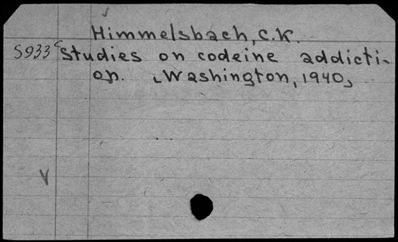 Himmelsbach, C.K.
S933c Studies on codeine addicti-
on. [Washington, 1940]
V